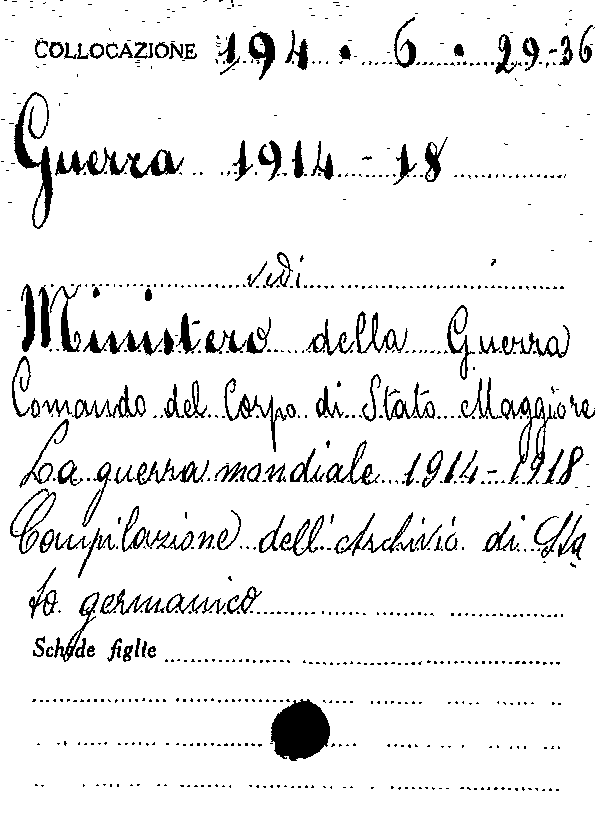 COLLOCAZIONE 194 . 6 . 29-36
Guerra 1914-18
vedi
Ministero della Guerra
Comando del Corpo di Stato Maggiore
La guerra mondiale 1914-1918
Compilazione dell'Archivio di Sta
to germanico
Schede figlie